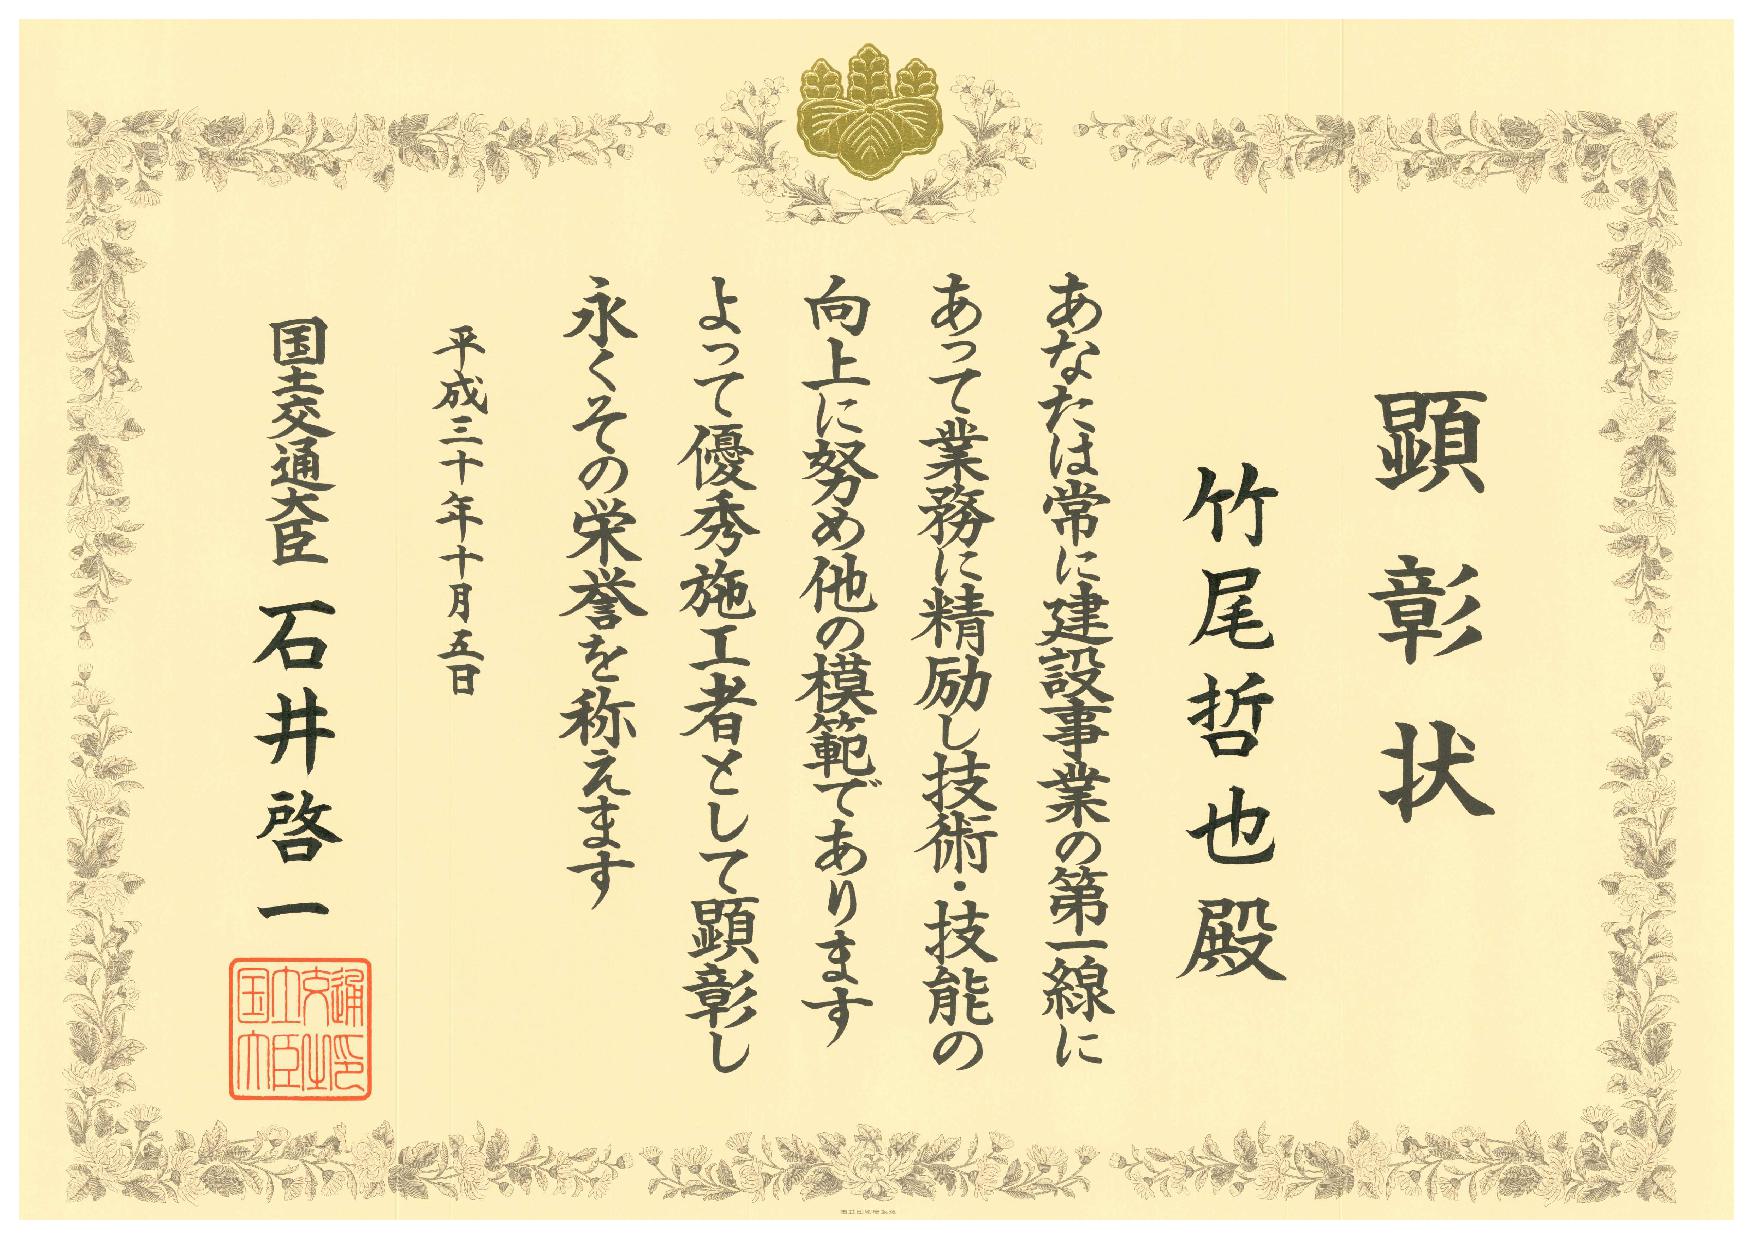 顕彰状
竹尾哲也殿
あなたは常に建設事業の第一線に
あって業務に精励し技術・技能の
向上に努め他の模範であります
よって優秀施工者として顕彰し
永くその栄誉を称えます
平成三十年十月五日
国土交通大臣 石井啓一
国土交通
大臣之印